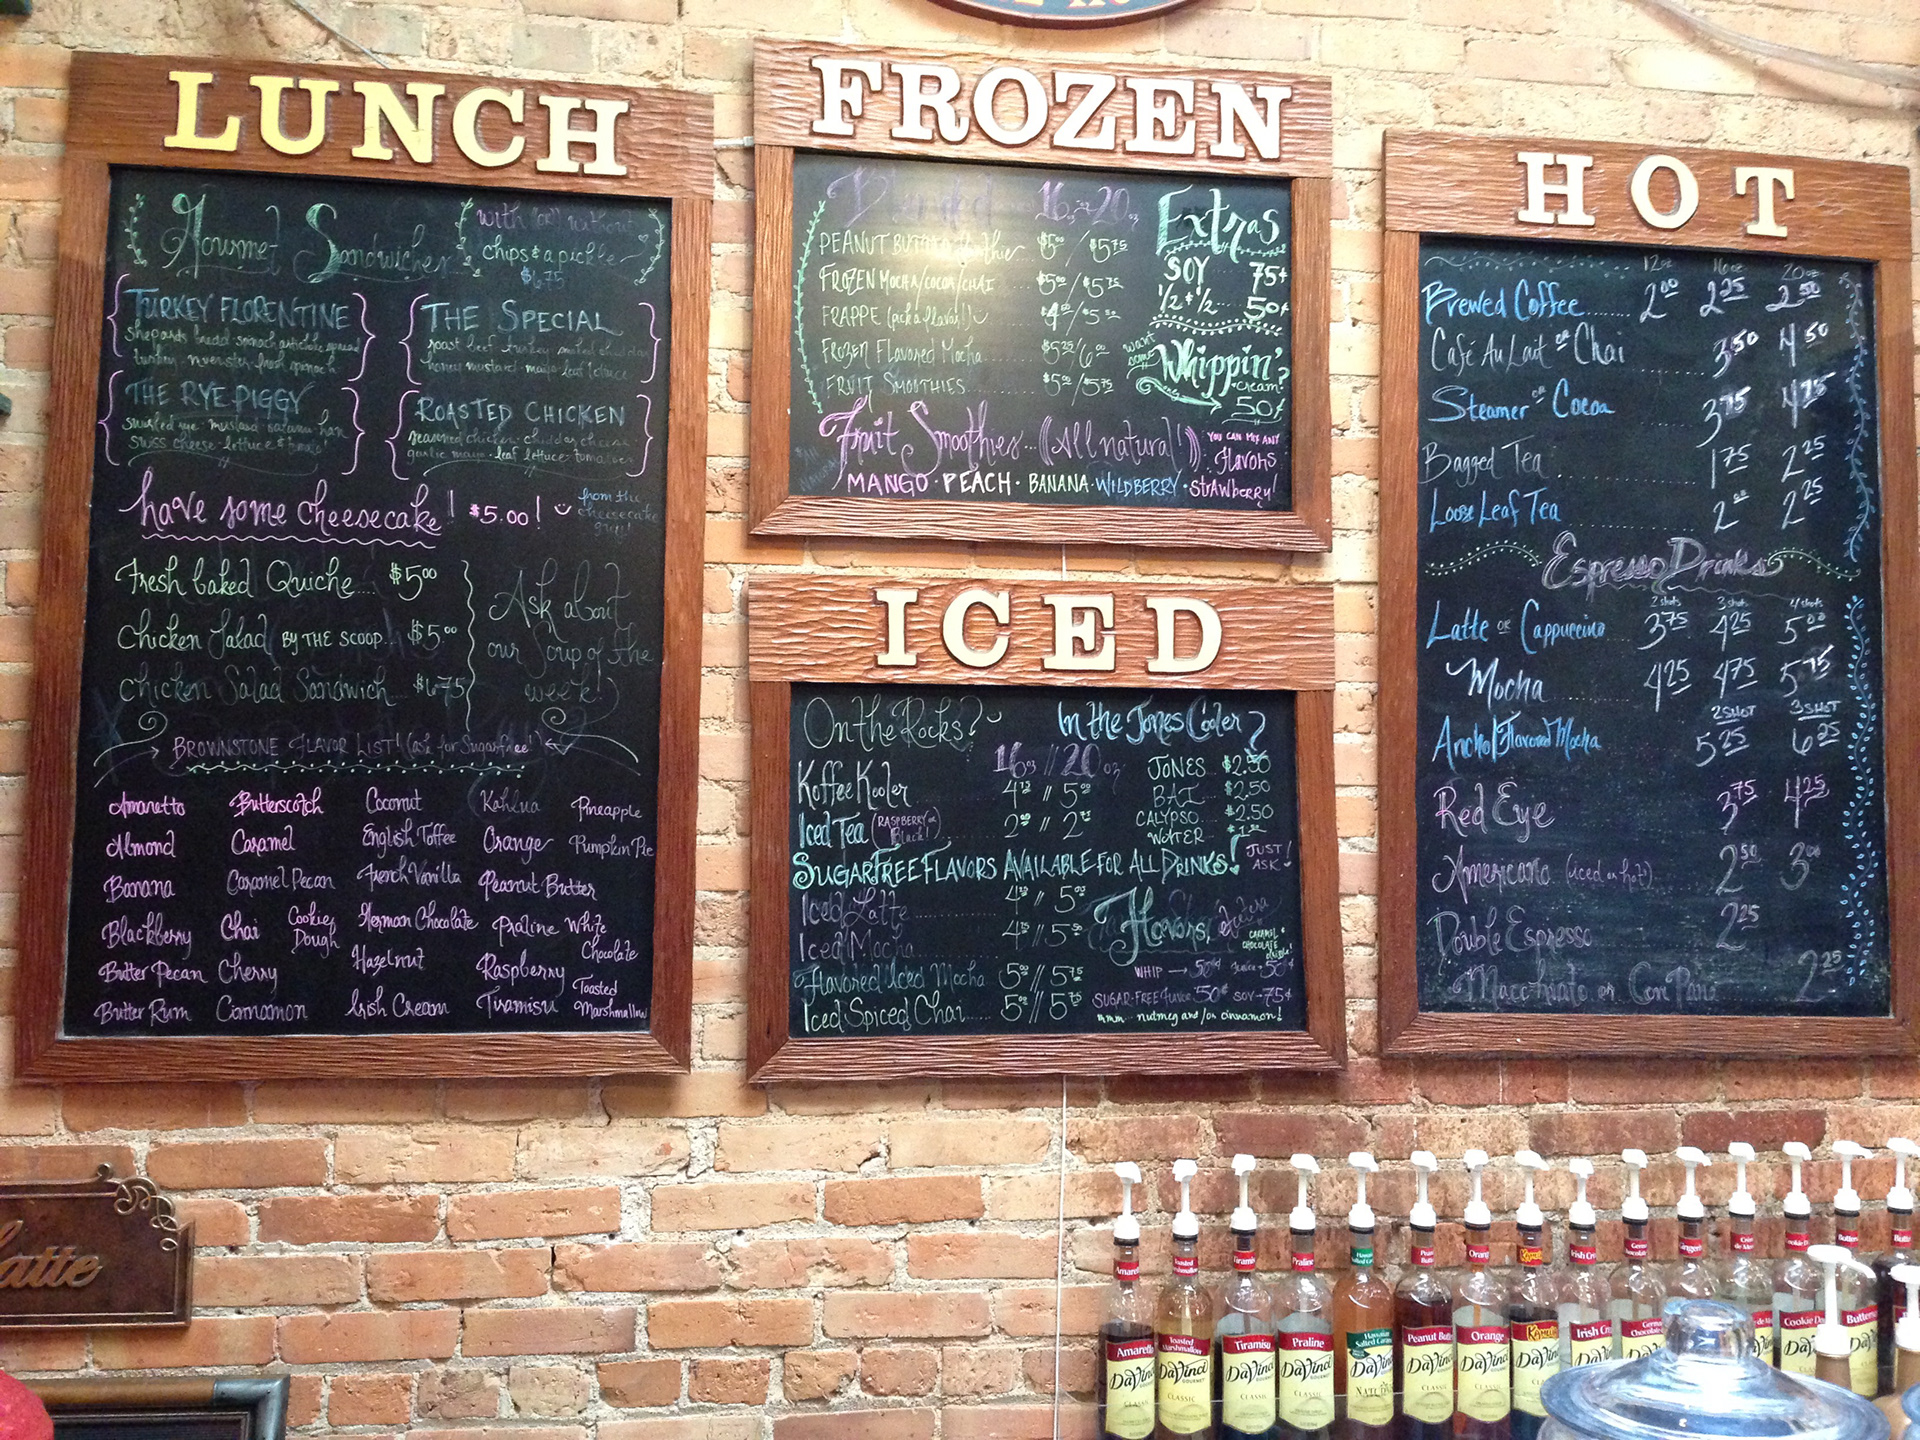 LUNCH
Gourmet Sandwiches
with (or) without
chips & a pickle
$6.75
TURKEY FLORENTINE
turkey
THE SPECIAL
roast beef turkey smoked cheddar
honey mustard mayo leaf lettuce
THE RYE PIGGY
swiss cheese lettuce & tomato
ROASTED CHICKEN
seasoned chicken cheddar cheese
garlic mayo leaf lettuce tomatoes
have some cheesecake! $5.00!
from the
cheesecake
guy!
Fresh baked Quiche.... $5.00
Chicken Salad BY THE SCOOP... $5.00
chicken Salad Sandwich.... $6.75
Ask about
our Soup of the
week!
BROWNSTONE FLAVOR LIST! (ask for Sugarfree!)
Amaretto Butterscotch Coconut Kahlua Pineapple
Almond Caramel English Toffee Orange Pumpkin Pie
Banana Caramel Pecan French Vanilla Peanut Butter
Blackberry Chai Cookie Dough German Chocolate Praline White Chocolate
Butter Pecan Cherry Hazelnut Raspberry Toasted Marshmallow
Butter Rum Cinnamon Irish Cream Tiramisu
FROZEN
Blended 16oz 20oz
PEANUT BUTTER $5.00/$5.75
FROZEN MOCHA/COCOA/CHAI $5.00/$5.75
FRAPPE (pick a flavor!)
FROZEN FLAVORED MOCHA $5.25/6.00
FRUIT SMOOTHIES $5.00/5.75
Extras
SOY 75¢
1/2 & 1/2 50¢
want some
Whippin'
cream?
50¢
Fruit Smoothies... ((All natural!))
YOU CAN MIX ANY
flavors
MANGO · PEACH · BANANA · WILDBERRY · STRAWBERRY!
ICED
On the Rocks?
16oz // 20oz
Koffee Kooler
Iced Tea (RASPBERRY or Black!)
In the Jones Cooler?
JONES $2.50
BAI $2.50
CALYPSO $2.50
WATER
SUGARFREE FLAVORS AVAILABLE FOR ALL DRINKS!
JUST ASK!
Iced Latte
Iced Mocha
Flavored Iced Mocha 5.00 // 5.75
Iced Spiced Chai..... 5.00 // 5.75
Flavors, Extra
CARAMEL &
CHOCOLATE
drizzle!
WHIP → 50¢
SUGAR-FREE 50¢ SOY - 75¢
mmm... nutmeg and/or cinnamon!
HOT
12oz 16oz 20oz
Brewed Coffee....... 2.00 2.25 2.50
Café Au Lait or Chai 3.50 4.50
Steamer or Cocoa 3.75 4.75
Bagged Tea 1.75 2.25
Loose Leaf Tea 2.00 2.25
Espresso Drinks
2 shots 3 shots 4 shots
Latte or Cappuccino 3.75 4.25 5.00
Mocha 4.25 4.75 5.75
2 SHOT 3 SHOT
Flavored Mocha 5.25 6.25
Red Eye 3.75 4.25
Americano (iced or hot) 2.50 3.00
Double Espresso 2.25
Macchiato or Con Pana 2.25
latte
Amaretto
Toasted Marshmallow
Tiramisu
Praline
Hawaiian Salted Caramel
Peanut Butter
Orange
Irish Cr
German Chocolate
Cookie Do
Butter
DaVinci
GOURMET
CLASSIC